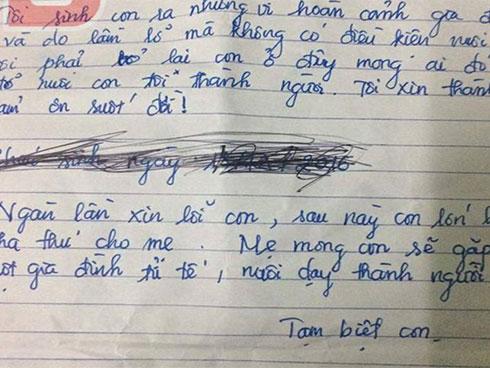 Tôi sinh con ra nhưng vì hoàn cảnh gia đ
và do lầm lỡ mà không có điều kiện nuôi
ôi phải bỏ lại con ở đây mong ai đó
tổ nuôi con tôi thành người. Tôi xin thàn
ảm ơn suốt đời!
sinh ngày 2016
Ngàn lần xin lỗi con, sau này con lớn l
ha thứ cho mẹ. Mẹ mong con sẽ gặp
ột gia đình tử tế, nuôi dạy thành người
Tạm biệt con.